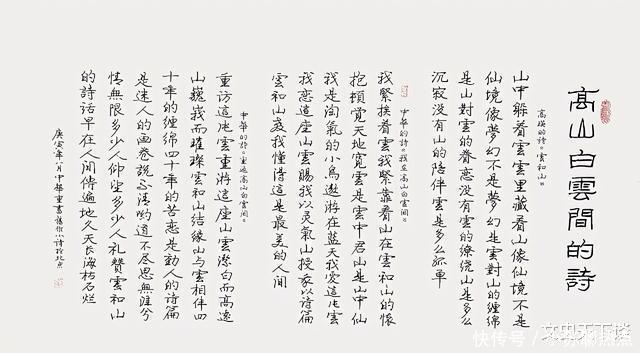 高山白雲間的詩
高瑛的詩。雲和山。
山中躲着雲雲里藏着山像仙境不是
仙境像夢幻不是夢幻是雲對山的纏綿
是山對雲的眷恋没有雲的缭绕山是多么
沉寂没有山的陪伴雲是多么孤单
中華的詩。我在高山白雲間。
我紧挨着雲我紧靠着山在雲和山的懷
抱頓覺天地寬雲是雲中君山是山中仙
我是淘氣的小鳥遨游在藍天我愛這片雲
我恋這座山雲賜我以灵氣山授我以詩篇
雲和山我懂得這是最美的人间
中華的詩。重返高山白雲间。
重访這片雲重游這座山雲潔白而高遠
山巍峩而璀璨雲和山结缘山与雲相伴四
十年的缠绵四十年的苦恋是動人的詩篇
是迷人的画卷説不清道不尽思無涯兮
情無限多少人仰望多少人礼赞雲和山
的詩话早在人间傳遍地久天长海枯石烂
庚寅年八月中華重書旧作小詩於北京
快传号
文史天下谈